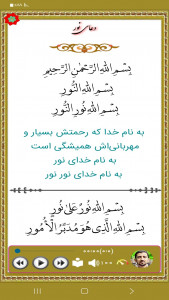 دعای نور
بِسْمِ اللهِ الرَّحْمٰنِ الرَّحِيمِ
بِسْمِ اللهِ النُّورِ
بِسْمِ اللهِ نُورِ النُّورِ
به نام خدا که رحمتش بسیار و
مهربانی‌اش همیشگی است
به نام خدای نور
به نام خدای نور نور
بِسْمِ اللهِ نُورٌ عَلىٰ نُورٍ
بِسْمِ اللهِ الَّذِي هُوَ مُدَبِّرُ الْأُمُورِ